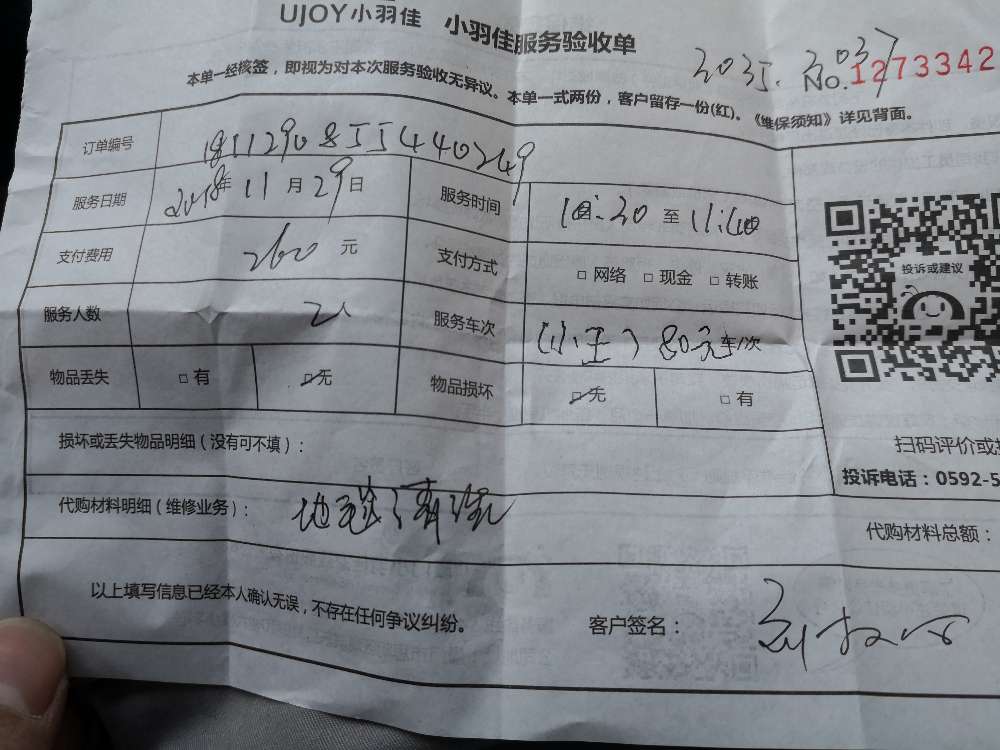 UJOY小羽佳 小羽佳服务验收单
3035. 3037
No.1273342
本单一经核签，即视为对本次服务验收无异议。本单一式两份，客户留存一份(红)。《维保须知》详见背面。
订单编号
服务日期 2018年11月29日 服务时间 10:30 至 11:40
支付费用 260 元 支付方式 □ 网络 □ 现金 □ 转账
服务人数 2人 服务车次 (小王) 80元 车/次
物品丢失 □ 有 □ 无 物品损坏 □ 无 □ 有
损坏或丢失物品明细（没有可不填）：
代购材料明细（维修业务）： 地毯清洗
代购材料总额：
以上填写信息已经本人确认无误，不存在任何争议纠纷。 客户签名：
投诉或建议
扫码评价或
投诉电话：0592-5